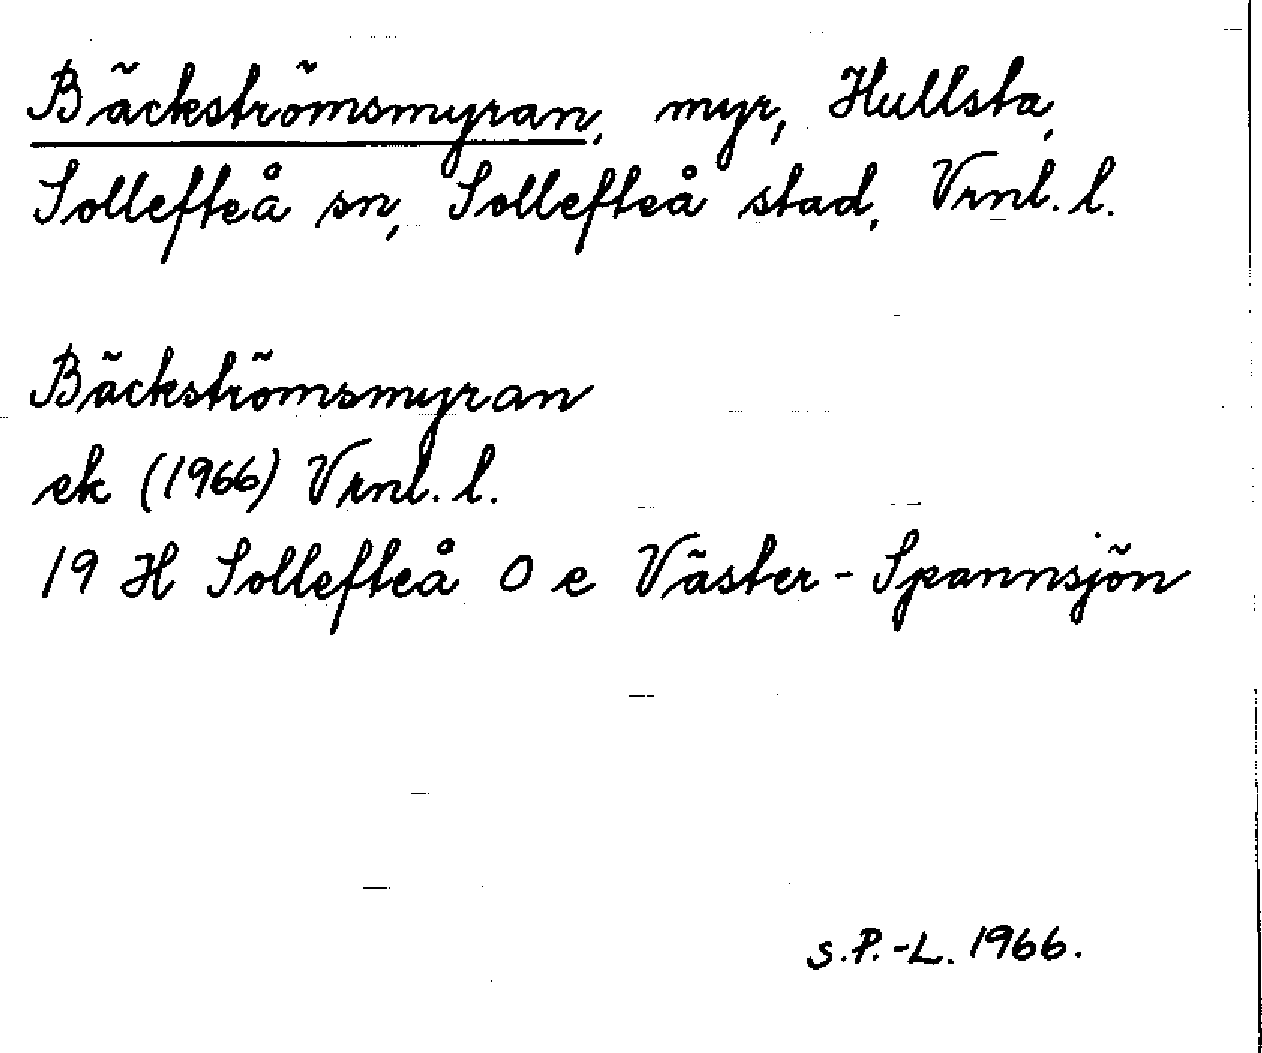 Bäckströmsmyran, myr, Hullsta,
Sollefteå sn, Sollefteå stad, Vrnl. l.
Bäckströmsmyran
ek (1966) Vrnl. l.
19 H Sollefteå O e Väster-Spannsjön
S.P.-L. 1966.